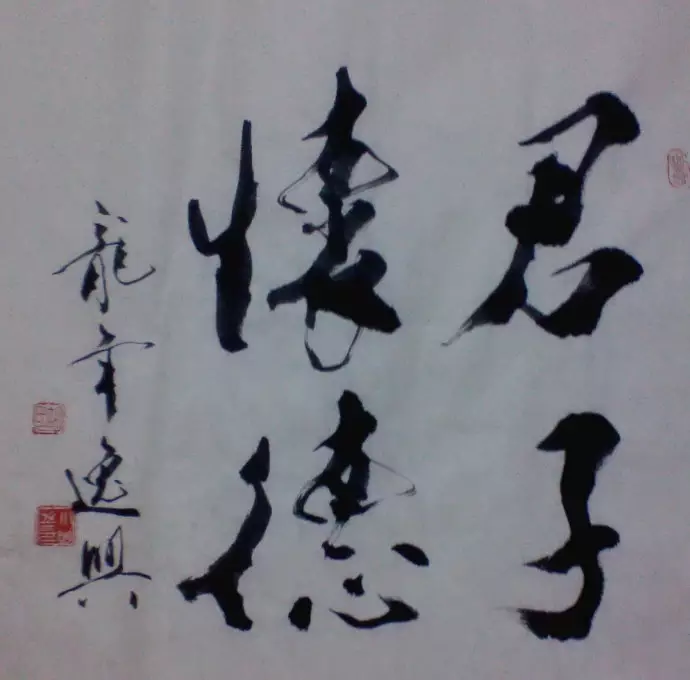 君子
懷德
龍年逸興